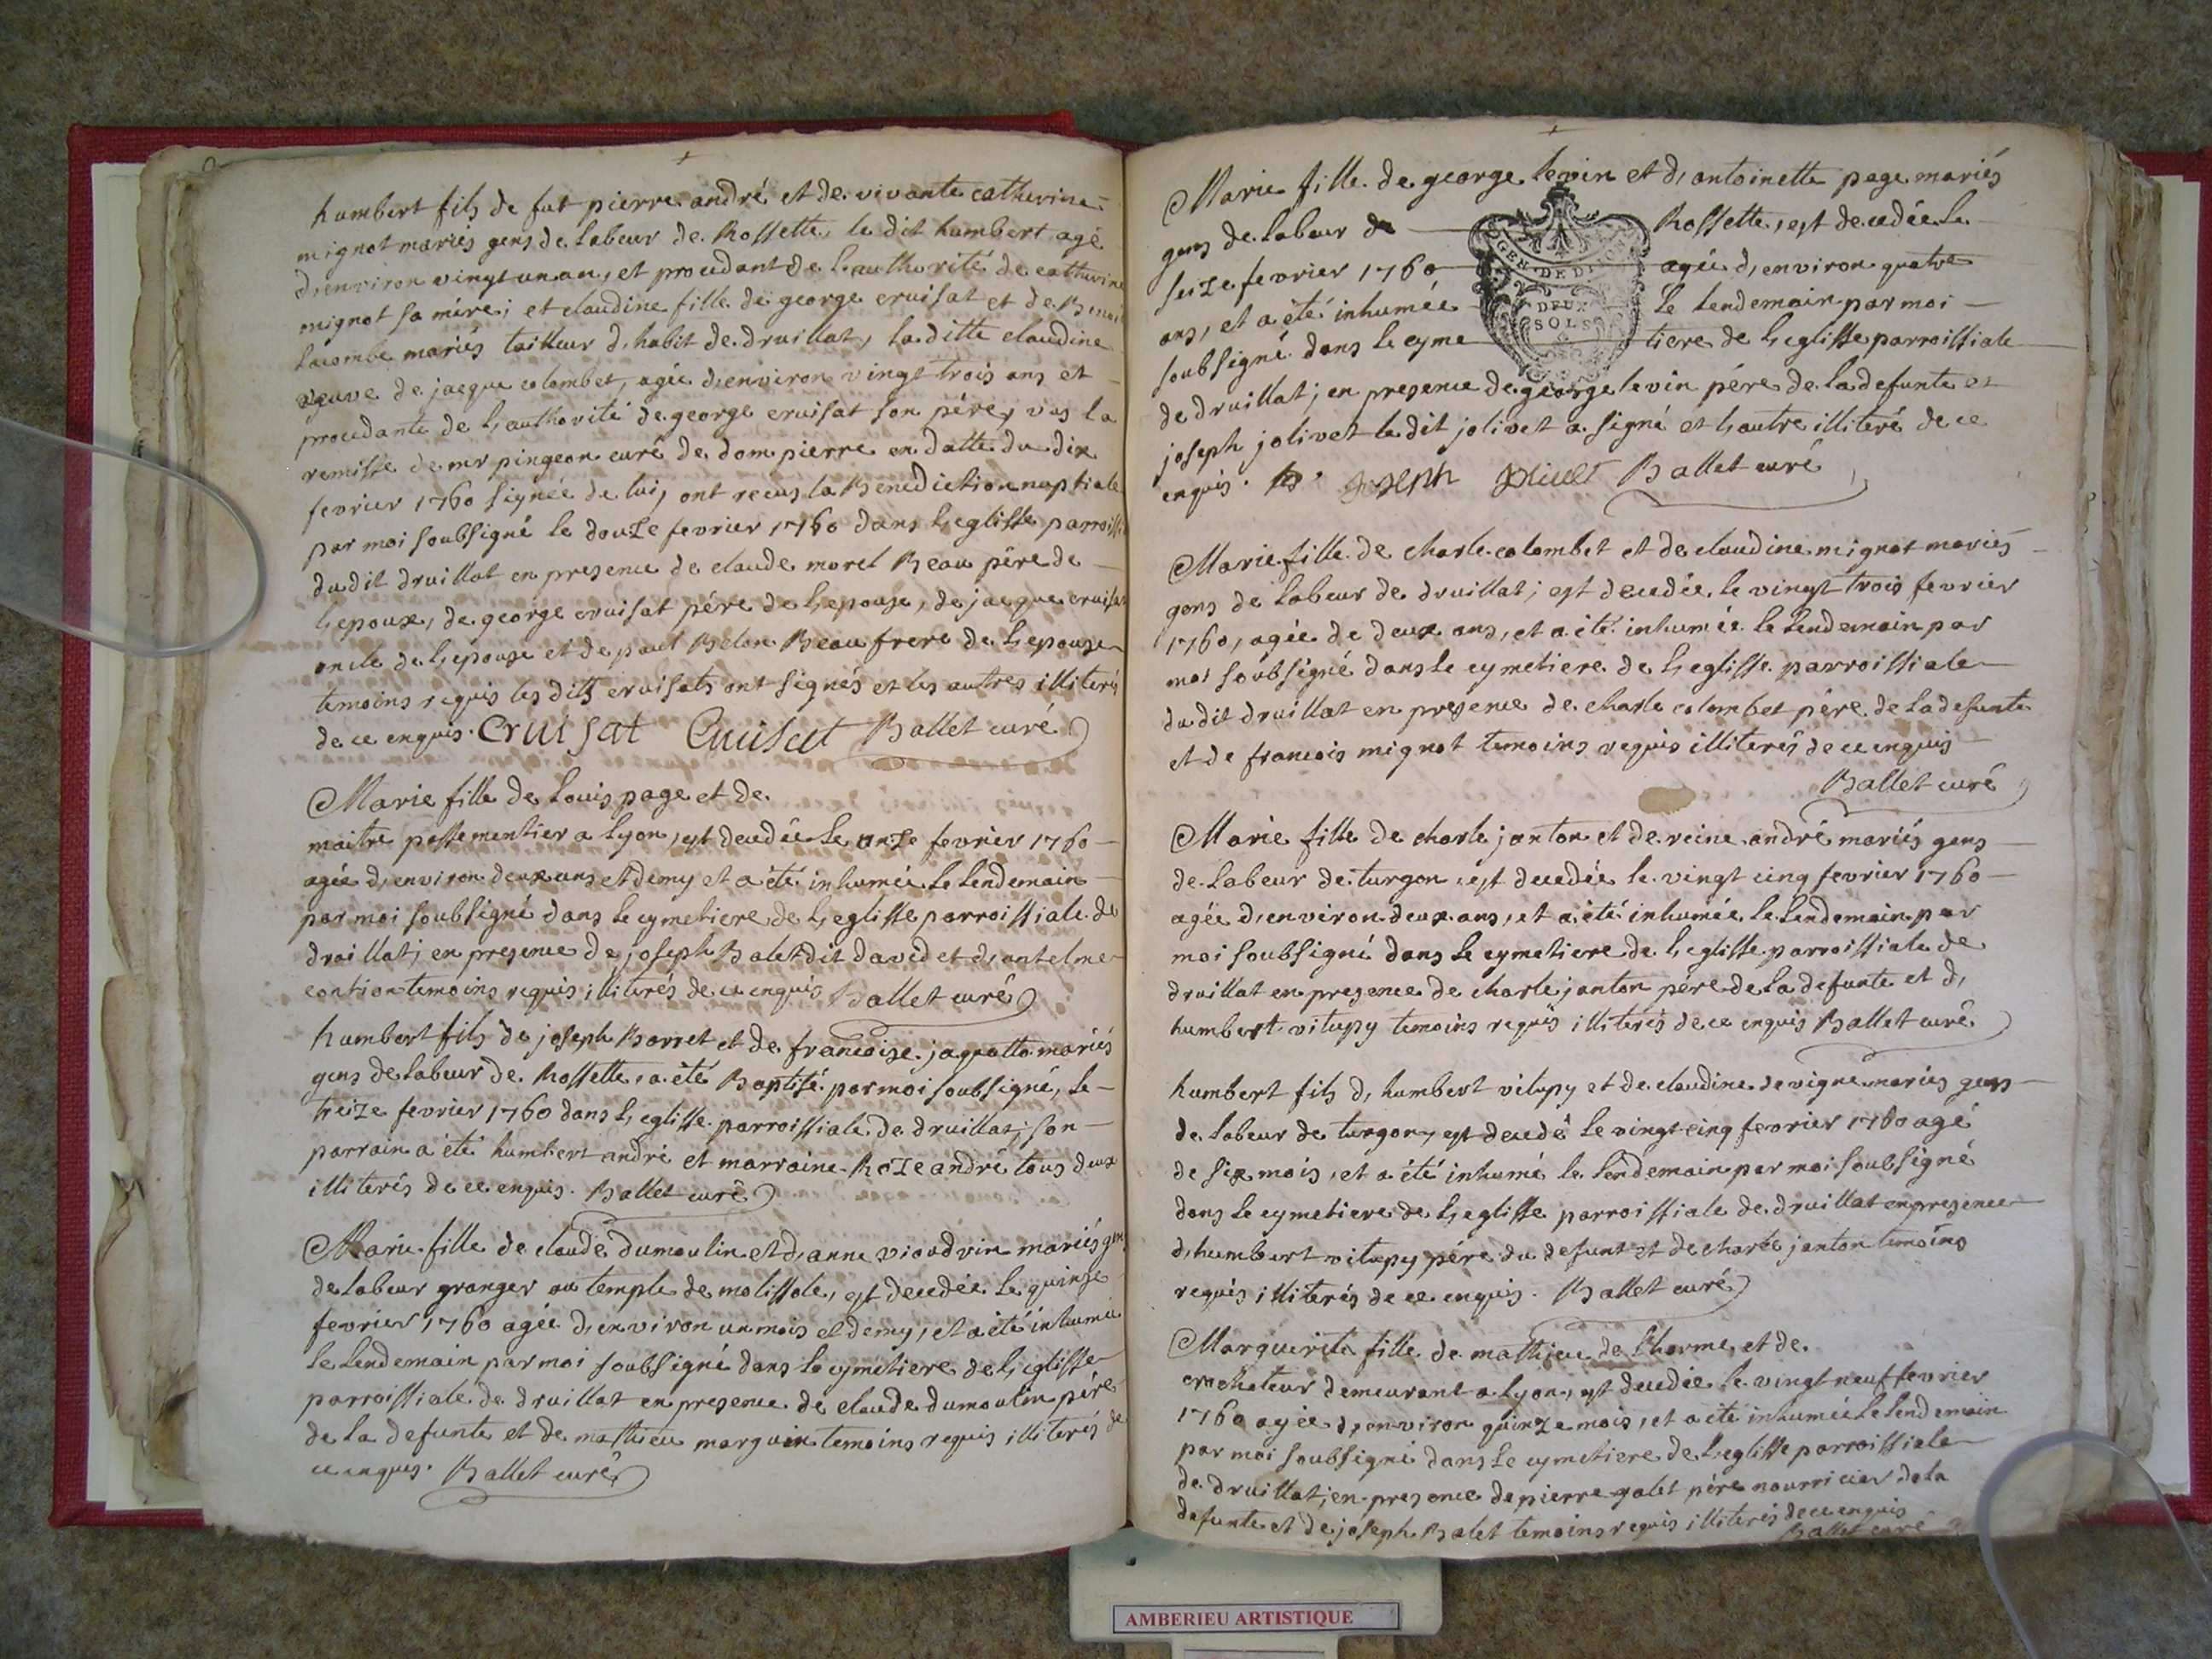 humbert fils de fut pierre andré et de vivante catherine
mignot mariés gens de labeur de Rossette, le dit humbert agé
d'environ vingt un an, et procedant de l'authorité de catherine
mignot sa mére; et claudine fille de george cruisat et de
lacombe mariés tailleur d'habit de druillat, la ditte claudine
veuve de jacque colombet, agée d'environ vingt trois ans et
procedante de l'authorité de george cruisat son pére, vus la
remisse de mr pingeon curé de dom pierre en datte du dix
fevrier 1760 signée de lui, ont recus la Benediction nuptiale
par moi soubsigné le douze fevrier 1760 dans l'eglisse parroissi
du dit druillat en presence de claude morel Beau pére de
l'epoux, de george cruisat pére de l'epouse, de jacque cruisat
oncle de l'epouse et de paul Belon Beau frere de l'epouse
temoins requis les dits cruisats ont signés et les autres illiterés
de ce enquis. Cruisat Cruisat Ballet curé
Marie fille de Louis page et de.
maitre passementier a Lyon, est decedée le onze fevrier 1760
agée d'environ deux ans et demy et a été inhumée le lendemain
par moi soubsigné dans le cymetiere de l'eglisse parroissiale de
druillat; en presence de joseph Balet dit david et d'antelme
contion temoins requis illiterés de ce enquis Ballet curé
humbert fils de joseph Borret et de francoise jaquotto mariés
gens de labeur de Rossette, a été Baptisé par moi soubsigné, le
treize fevrier 1760 dans l'eglisse parroissiale de druillat; son
parrain a été humbert andré et marraine Roze andré tous deux
illiterés de ce enquis. Ballet curé
Marie fille de claude dumoulin et d'anne vioudvin mariés gens
de labeur granger au temple de molissole, est decedée le quinze
fevrier 1760 agée d'environ un mois et demy, et a été inhumée
le lendemain par moi soubsigné dans le cymetiere de l'eglisse
parroissiale de druillat en presence de claude dumoulin pére
de la defunte et de mathieu marguin temoins requis illiterés de
ce enquis. Ballet curé
Marie fille de george levin et d'antoinette page mariés
gens de labeur de Rossette, est decedée le
seize fevrier 1760 agée d'environ quatre
ans, et a été inhumée le lendemain par moi
soubsigné dans le cyme tiere de l'eglisse parroissiale
GEN. DE DIJON
DEUX
SOLS
de druillat; en presence de george levin pére de la defunte et
joseph jolivet le dit jolivet a signé et l'autre illiteré de ce
enquis. Joseph Ballet curé
Marie fille de charle colombet et de claudine mignot mariés
gens de labeur de druillat; est decedée le vingt trois fevrier
1760, agée de deux ans, et a été inhumée le lendemain par
moi soubsigné dans le cymetiere de l'eglisse parroissiale
du dit druillat en presence de charle colombet pére de la defunte
et de francois mignot temoins requis illiterés de ce enquis
Ballet curé
Marie fille de charle janton et de reine andré mariés gens
de labeur de turgon, est decedée le vingt cinq fevrier 1760
agée d'environ deux ans, et a été inhumée le lendemain par
moi soubsigné dans le cymetiere de l'eglisse parroissiale de
druillat en presence de charle janton pére de la defunte et d'
humbert vitupy temoins requis illiterés de ce enquis Ballet curé
humbert fils d'humbert vitupy et de claudine devigne mariés gens
de labeur de turgon, est decedé le vingt cinq fevrier 1760 agé
de six mois, et a été inhumé le lendemain par moi soubsigné
dans le cymetiere de l'eglisse parroissiale de druillat en presence
d'humbert vitupy pére du defunt et de charle janton temoins
requis illiterés de ce enquis. Ballet curé
Marguerite fille de mathieu de Lhorme, et de.
crocheteur demeurant a Lyon, est decedée le vingt neuf fevrier
1760 agée d'environ quinze mois, et a été inhumée le lendemain
par moi soubsigné dans le cymetiere de l'eglisse parroissiale
de druillat; en presence de pierre galet pére nourricier de la
defunte et de joseph Balet temoins requis illiterés de ce enquis
Ballet curé
AMBERIEU ARTISTIQUE